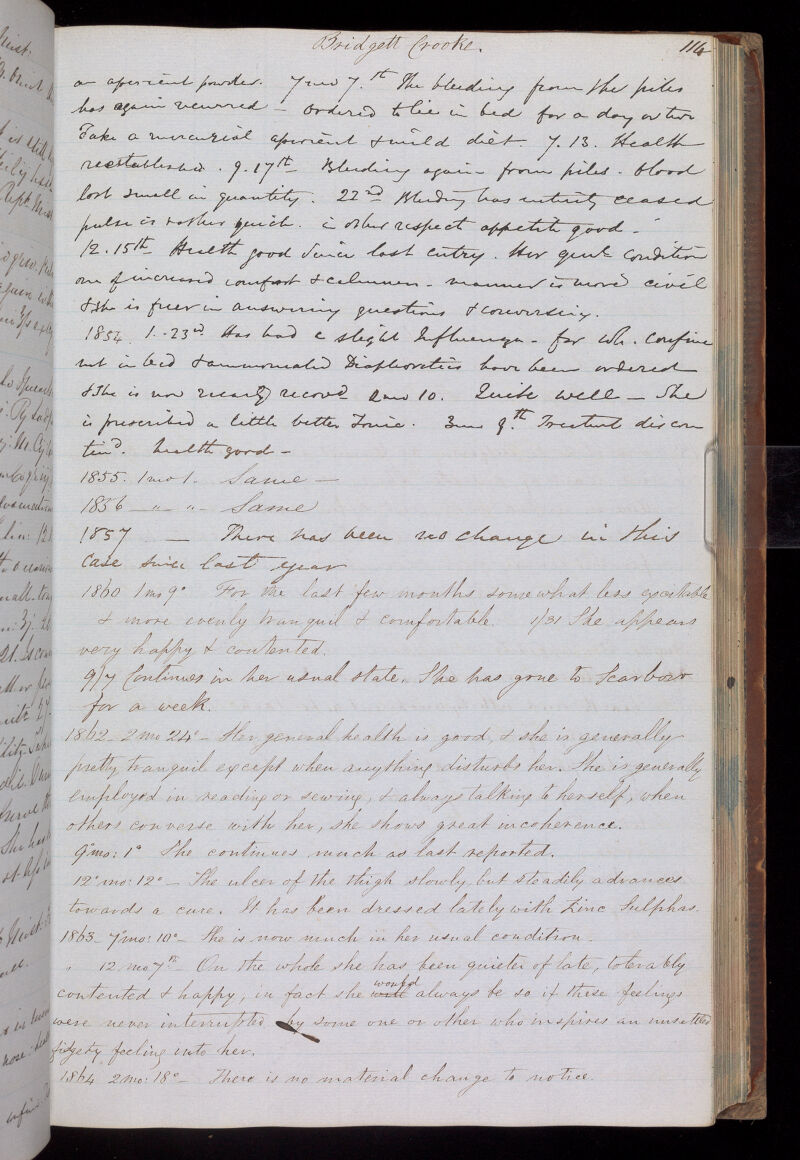 Bridgett Crooke. 114
an aperient powder. 7 mo 7.th The bleeding from the piles
has again recurred — ordered to lie in bed for a day or two
Take a mercurial aperient & mild diet. 7. 13. Health
reestablished. 9. 17th Bleeding again from piles. blood
lost small in quantity. 22nd Bleeding has entirely ceased
pulse is rather quick. in other respect appetite good —
12. 15th Health good since last entry. Her genl condition
one of increased comfort & calmness. manner is more civil
& she is freer in answering questions & conversing.
1854. 1. 23d. Has had a slight Influenza. for wh. confine
ment in bed & ammoniated Diaphoretics have been ordered
& she is now nearly recovd 2 mo 10. Quite well — She
is prescribed a little bitter Tonic. 3 mo 9.th Treatment discon
tind. health good —
1855. 1 mo 1. Same —
1856 — " — " — Same
1857 — There has been no change in this
case since last year
1860 1 mo 9° For the last few months somewhat less excitable
& more evenly tranquil & comfortable. 1/31 She appears
very happy & contented.
9/7 Continues in her usual state. She has gone to Scarboro
for a week.
1862 – 2 mo 24° – Her general health is good, & she is generally
pretty tranquil except when anything disturbs her. She is generally
employed in reading or sewing, & always talking to herself, when
others converse with her, she shows great incoherence.
9° mo: 1° She continues much as last reported.
12° mo: 12° – The ulcer of the thigh slowly but steadily advances
towards a cure. It has been dressed lately with Zinc Sulphas.
1863 7° mo: 10° – She is now much in her usual condition.
" 12 mo 7th On the whole she has been quieter of late, tolerably
contented & happy, in fact she would always be so if these feelings
were never interrupted by some one or other who inspires an unsettled
fidgety feeling into her.
1864 2 mo: 18° – There is no material change to notice.